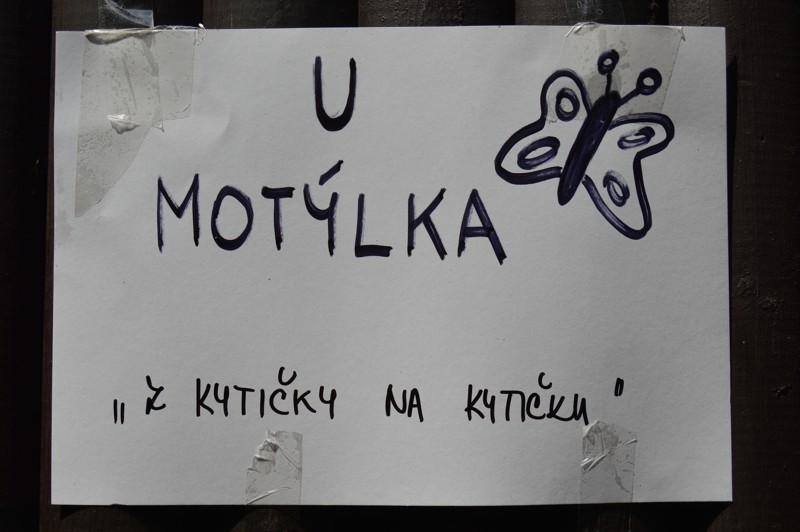 U
MOTÝLKA
„Z KYTIČKY NA KYTIČKU"